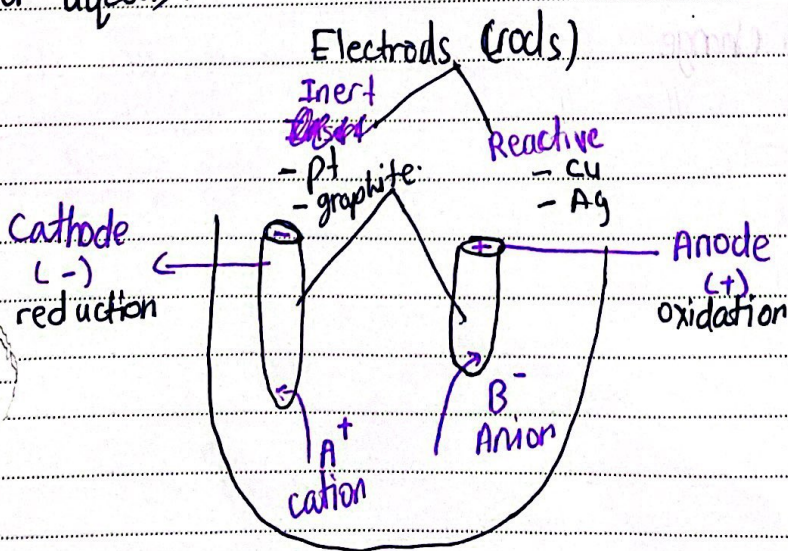 Electrods (rods)
Inert
Reactive
- Pt
- graphite.
- Cu
- Ag
Cathode
(-)
reduction
-
+
Anode
(+)
oxidation
A+
cation
B-
Anion